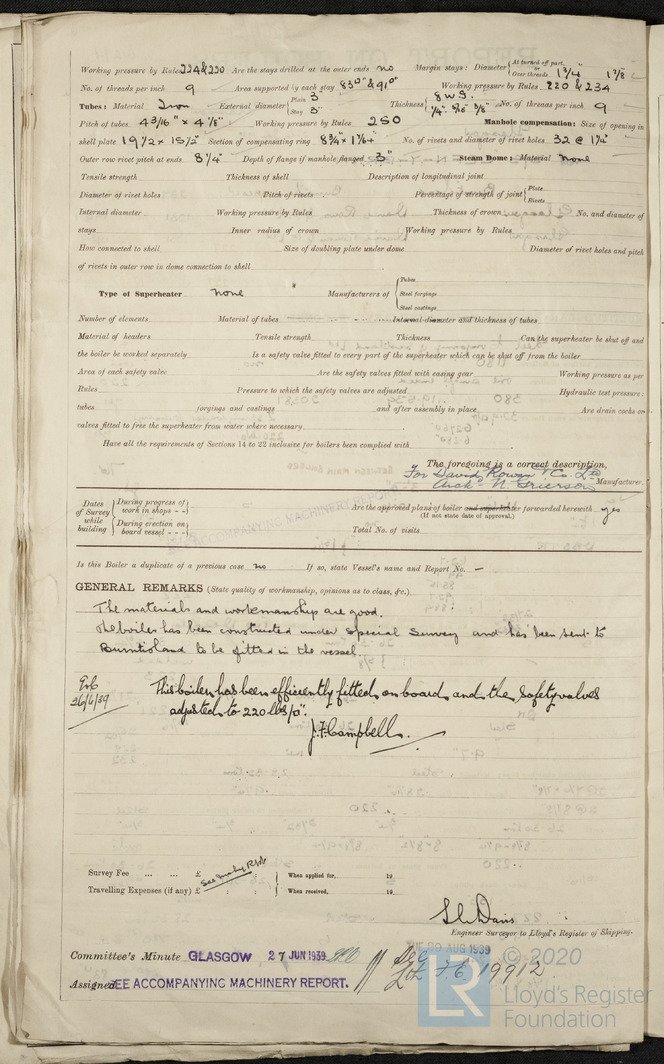 Working pressure by Rules 224 & 230 Are the stays drilled at the outer ends no Margin stays: Diameter { At turned off part, or Over threads 1 3/4" 1 7/8"
No. of threads per inch 9 Area supported by each stay 830" & 910" Working pressure by Rules 220 & 234
Tubes: Material Iron External diameter { Plain 3" Stay 3" Thickness { 8 WG. 1/4" 5/16" 3/8" No. of threads per inch 9
Pitch of tubes 4 3/16" × 4 1/8" Working pressure by Rules 250 Manhole compensation: Size of opening in
shell plate 19 1/2 × 15 1/2" Section of compensating ring No. of rivets and diameter of rivet holes 32 @ 1 1/4"
Outer row rivet pitch at ends 8 1/4" Depth of flange if manhole flanged 3" Steam Dome: Material none
Tensile strength Thickness of shell Description of longitudinal joint
Diameter of rivet holes Pitch of rivets Percentage of strength of joint { Plate Rivets
Internal diameter Working pressure by Rules Thickness of crown No. and diameter of
stays Inner radius of crown Working pressure by Rules
How connected to shell Size of doubling plate under dome Diameter of rivet holes and pitch
of rivets in outer row in dome connection to shell
Type of Superheater none Manufacturers of { Tubes Steel forgings Steel castings
Number of elements Material of tubes Internal diameter and thickness of tubes
Material of headers Tensile strength Thickness Can the superheater be shut off and
the boiler be worked separately Is a safety valve fitted to every part of the superheater which can be shut off from the boiler
Area of each safety valve Are the safety valves fitted with easing gear Working pressure as per
Rules Pressure to which the safety valves are adjusted Hydraulic test pressure:
tubes forgings and castings and after assembly in place Are drain cocks or
valves fitted to free the superheater from water where necessary
Have all the requirements of Sections 14 to 22 inclusive for boilers been complied with
The foregoing is a correct description,
For David Rowan & Co. Ld
Archd. N. Grierson Manufacturer.
Dates of Survey while building { During progress of work in shops - - During erection on board vessel - - - } SEE ACCOMPANYING MACHINERY REPORT
Are the approved plans of boiler and superheater forwarded herewith yes
(If not state date of approval.)
Total No. of visits
Is this Boiler a duplicate of a previous case no If so, state Vessel's name and Report No. —
GENERAL REMARKS (State quality of workmanship, opinions as to class, &c.)
The materials and workmanship are good.
The boiler has been constructed under Special Survey and has been sent to
Burntisland to be fitted in the vessel.
26/6/39
This boiler has been efficiently fitted on board and the safety valves
adjusted to 220 lbs/□".
J. F. Campbell.
Survey Fee ... ... £ See Mchy Rpt When applied for, 19
Travelling Expenses (if any) £ : : When received, 19
S. C. Davis
Engineer Surveyor to Lloyd's Register of Shipping.
Committee's Minute GLASGOW 27 JUN 1939
TUE 29 AUG 1939
Assigned SEE ACCOMPANYING MACHINERY REPORT.
19912
© 2020
LR
Lloyd's Register
Foundation